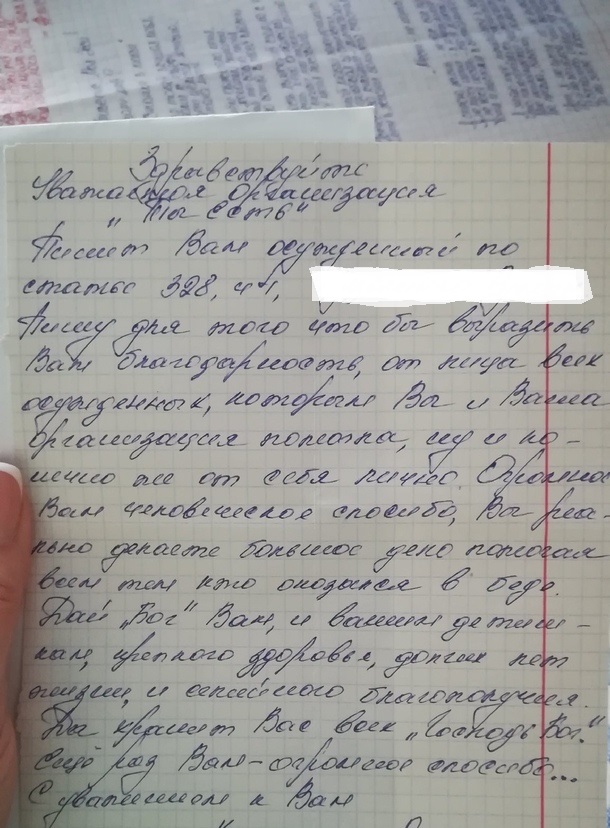 Здравствуйте
Уважаемая организация
"Ты Есть"
Пишет Вам осужденный по
статье 328, ч 1,
Пишу для того что бы выразить
Вам благодарность, от лица всех
осужденных, которым Вы и Ваша
организация помогла, ну и ко-
нечно же от себя лично. Огромное
Вам человеческое спосибо, Вы реа-
льно делаете большое дело помогая
всем тем кто оказался в беде.
Дай „Бог" Вам, и вашим детиш-
кам, крепкого здоровья, долгих лет
жизни, и семейного благополучия.
Да хранит Вас всех „Господь Бог."
Ещё раз Вам - огромное спосибо...
С уважением к Вам